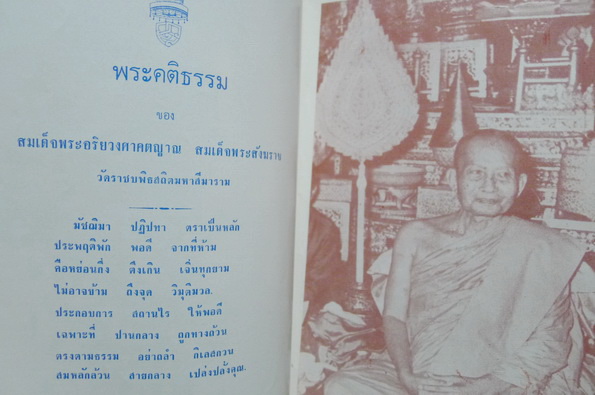 พระคติธรรม
ของ
สมเด็จพระอริยวงศาคตญาณ สมเด็จพระสังฆราช
วัดราชบพิธสถิตมหาสีมาราม
มัชฌิมา ปฏิปทา ตราเป็นหลัก
ประพฤติพัก พอดี จากที่ห้าม
คือหย่อนถึง ตึงเกิน เจิ่นทุกยาม
ไม่อาจข้าม ถึงจุด วิมุติมวล.
ประกอบการ สถานไร ให้พอดี
เฉพาะที่ ปานกลาง ถูกทางถ้วน
ตรงตามธรรม อย่าถลำ กิเลสกวน
สมหลักล้วน สายกลาง เปล่งปลั่งคุณ.